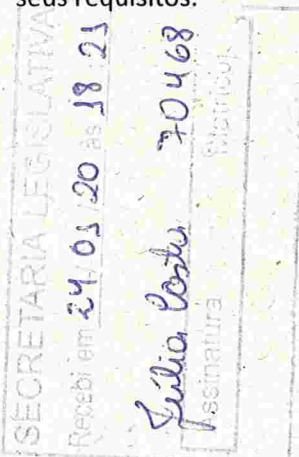 seus requisitos.
SECRETARIA LEGISLATIVA
Recebi em 24 01 20 às 18 21
Júlia Costa 70468
Assinatura Matrícula